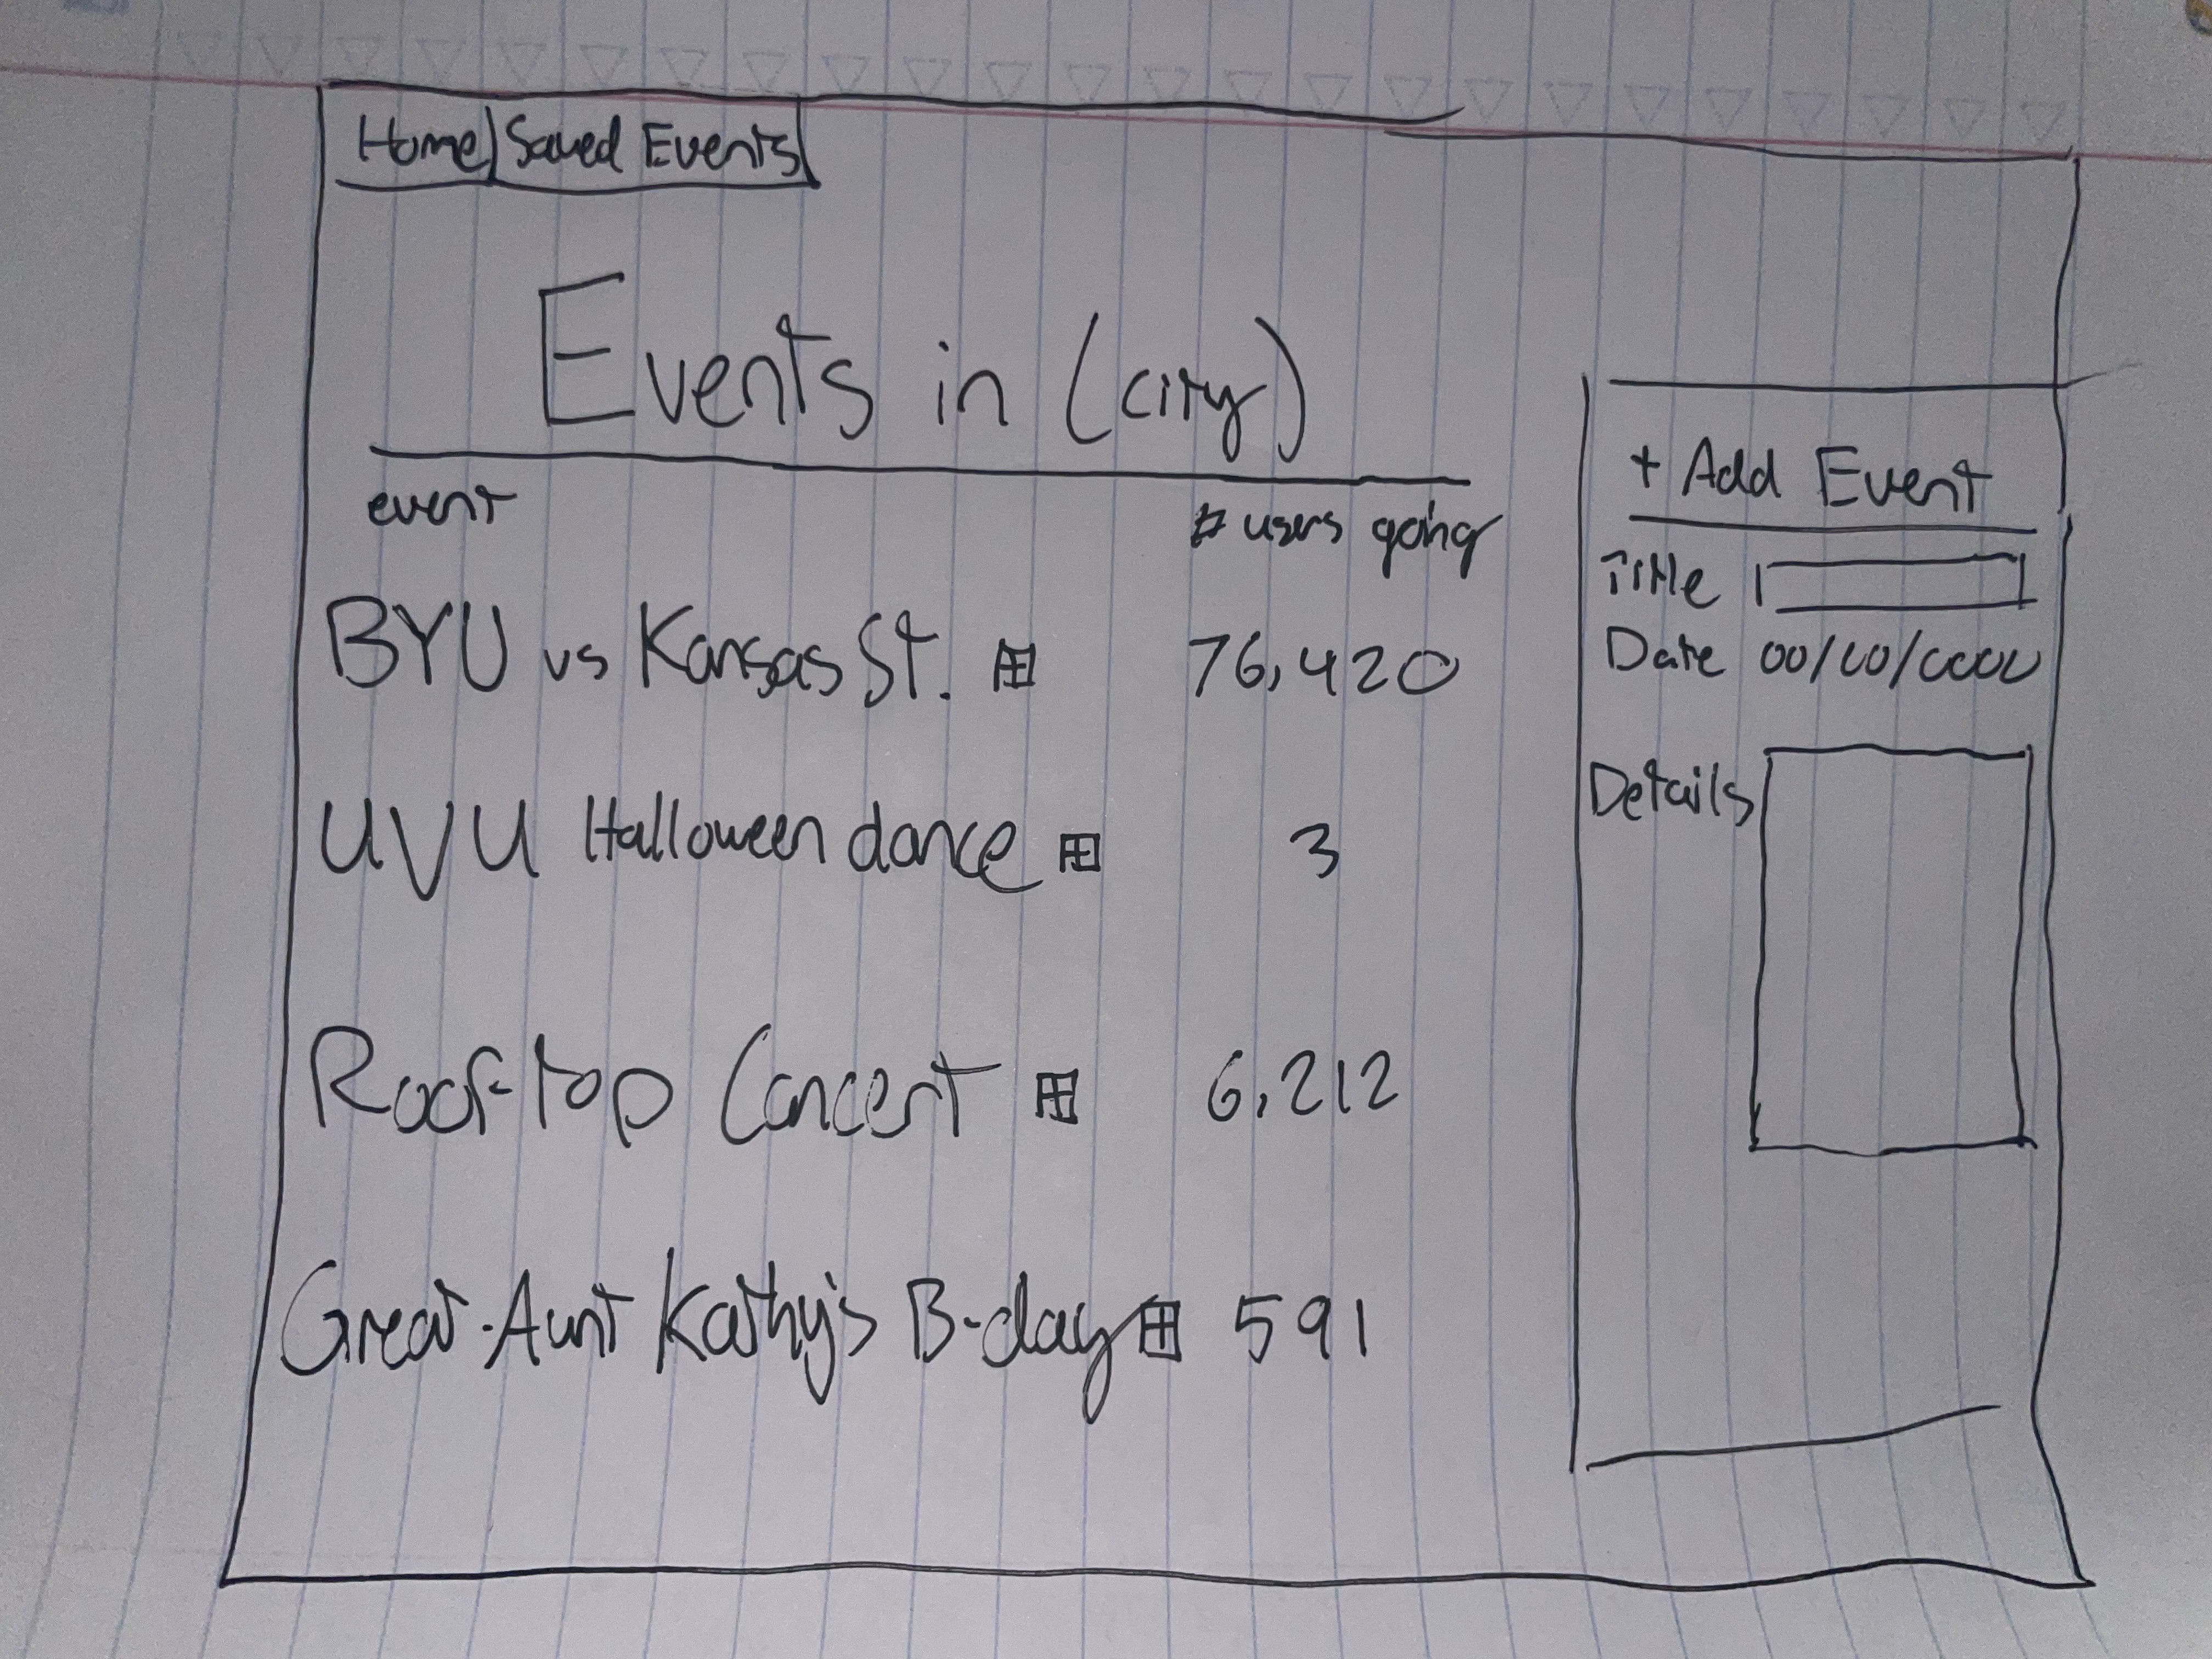 Home Saved Events
Events in (city)
event # users going
BYU vs Kansas St. 76,420
UVU Halloween dance 3
Rooftop Concert 6,212
Great-Aunt Kathy's B-day 591
+ Add Event
Title
Date 00/00/0000
Details